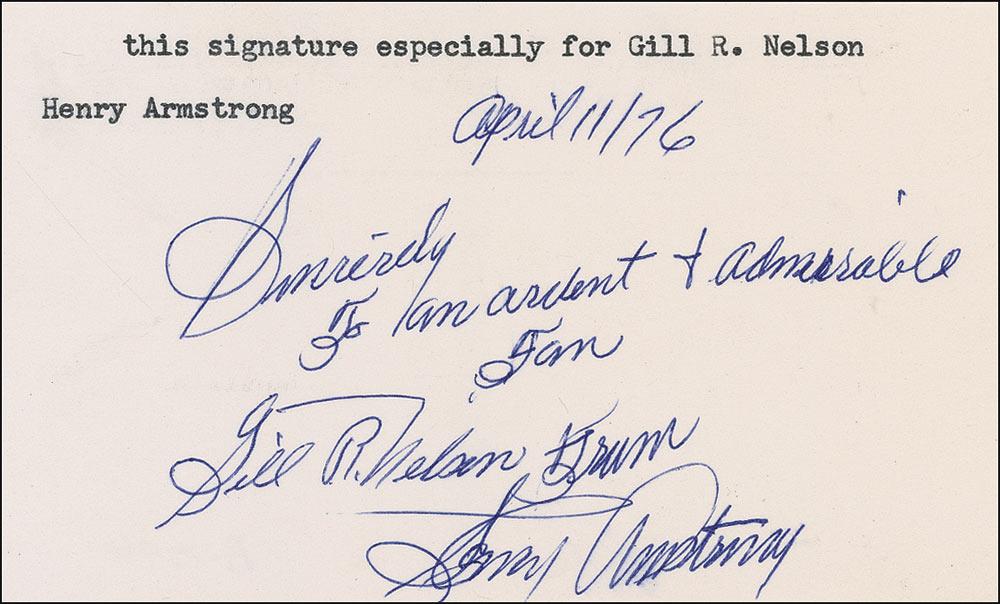 this signature especially for Gill R. Nelson
Henry Armstrong
April 11/76
Sincerely
To an ardent + admirable
Fan
Gill R. Nelson From
Henry Armstrong